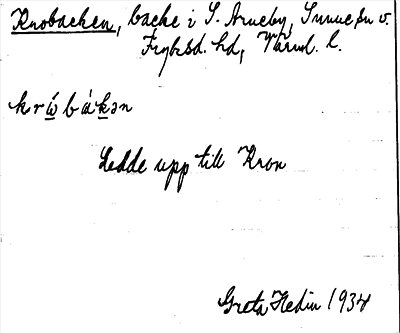 Krobacken, backe i S. Arneby, Sunne sn v.
Fryksd. hd, Värml. l.
krώ̲bàk̲ən
Ledde upp till Kron
Greta Hedin 1934